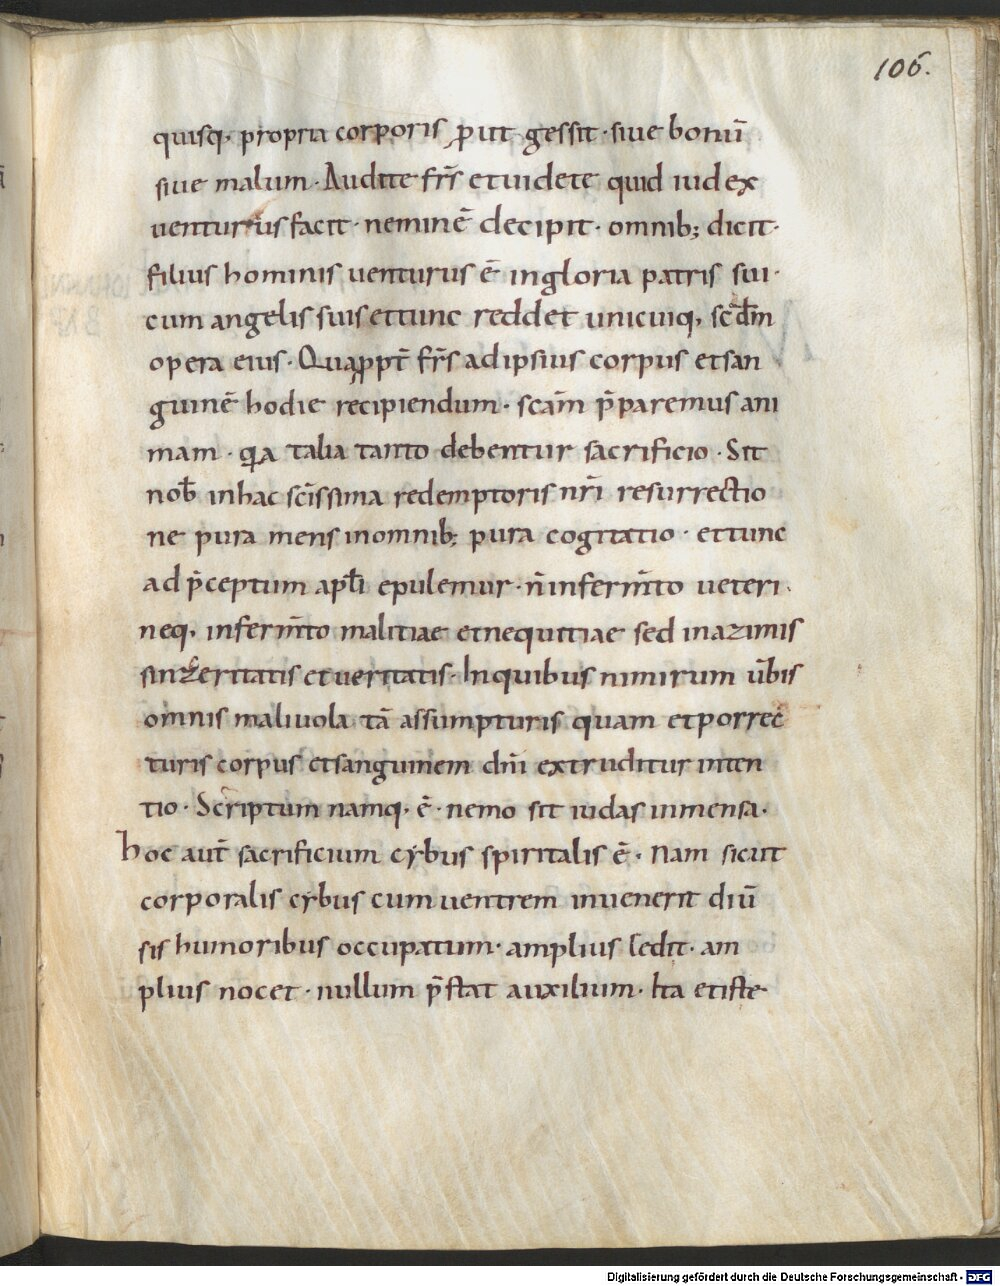 106.
quisq; propria corporis ꝓut gessit · siue bonū
siue malum · Audite fr̄s et uidete quid iudex
uenturus facit · neminē decipit · omnib; dicit ·
filius hominis uenturus ē in gloria patris sui ·
cum angelis suis et tunc reddet unicuiq; scd̄m
opera eius · Quaꝓpt̄ fr̄s ad ipsius corpus et san
guinē hodie recipiendum · scām p̄paremus ani
mam · qia talia tanto debentur sacrificio · Sit
nob̄ in hac sc̄issima redemptoris nr̄i resurrectio
ne pura mens in omnib; pura cogitatio · et tunc
ad p̄ceptum apl̄i epulemur · n̄ in ferm̄to ueteri ·
neq; in ferm̄to malitiae et nequitiae sed in azimis
sinzeritatis et ueritatis · In quibus nimirum ūbis
omnis maliuola tā assumpturis quam et porrec
turis corpus et sanguinem dn̄i extruditur inten
tio · Scriptum namq; ē · nemo sit iudas in mensa ·
hoc aut̄ sacrificium cybus spiritalis ē · Nam sicut
corporalis cybus cum uentrem inuenerit diū
sis humoribus occupatum · amplius ledit · am
plius nocet · nullum p̄stat auxilium · Ita et iste
Digitalisierung gefördert durch die Deutsche Forschungsgemeinschaft - DFG